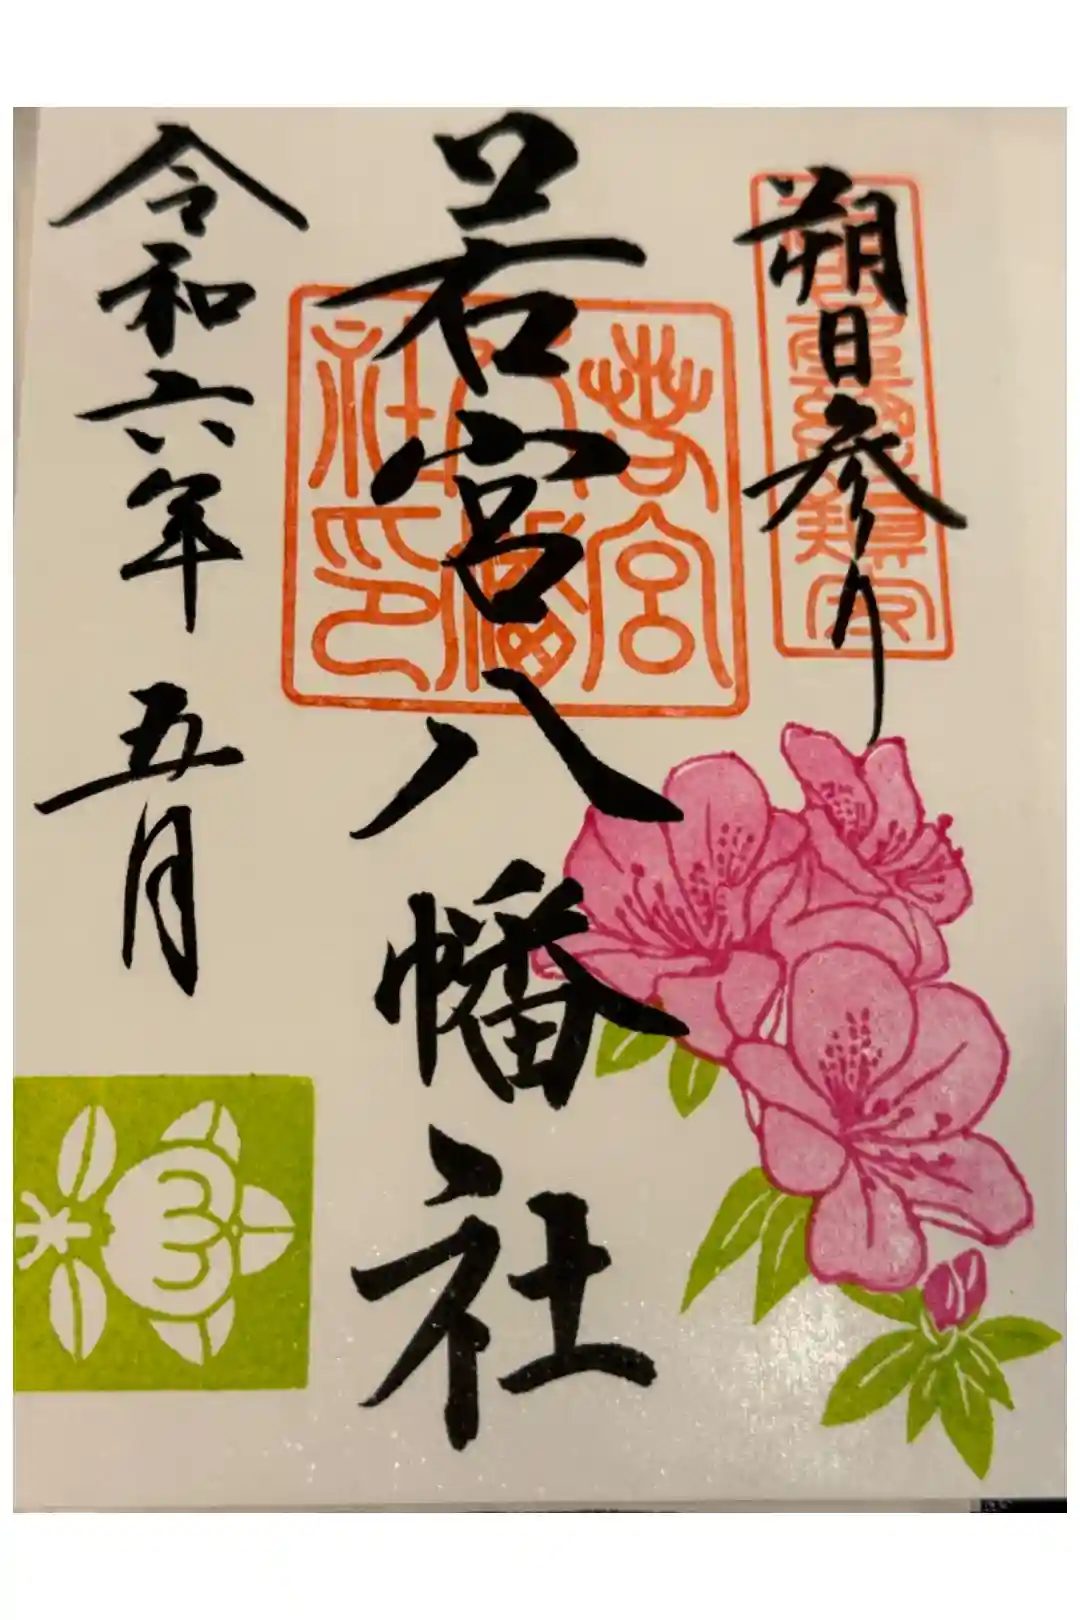 朔日参り
若宮八幡社
若宮八幡社印
令和六年 五月